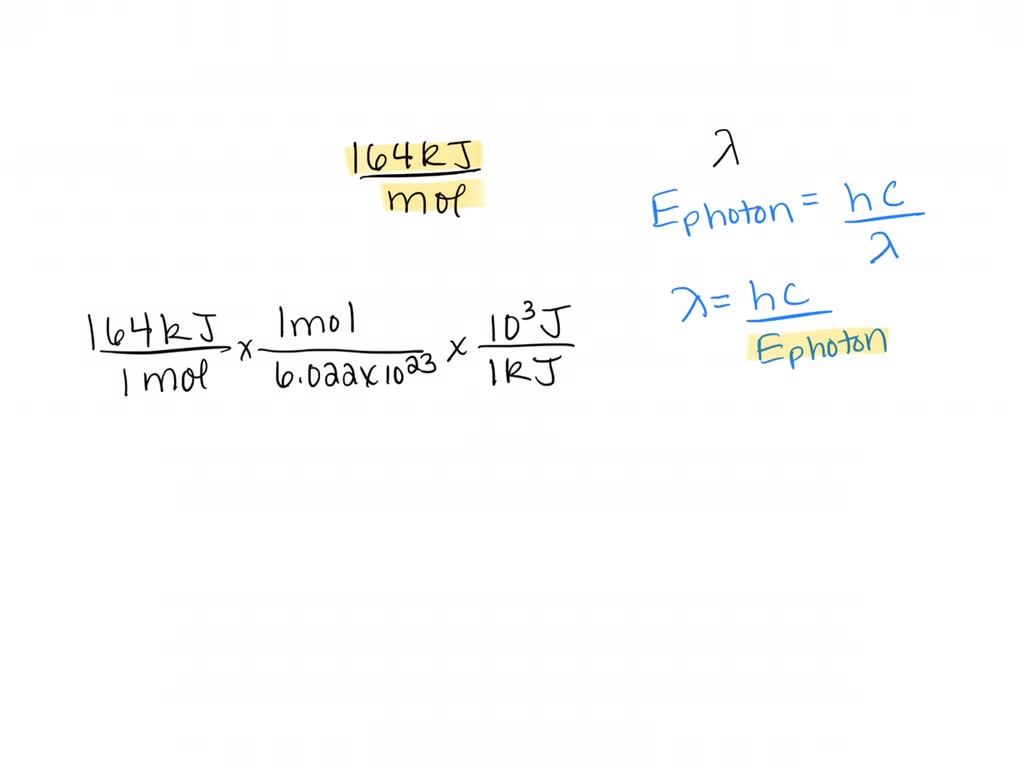 164kJ
mol
λ
Ephoton = hc
λ
λ = hc
Ephoton
164kJ x 1mol x 10³J
1 mol 6.022x10²³ 1kJ